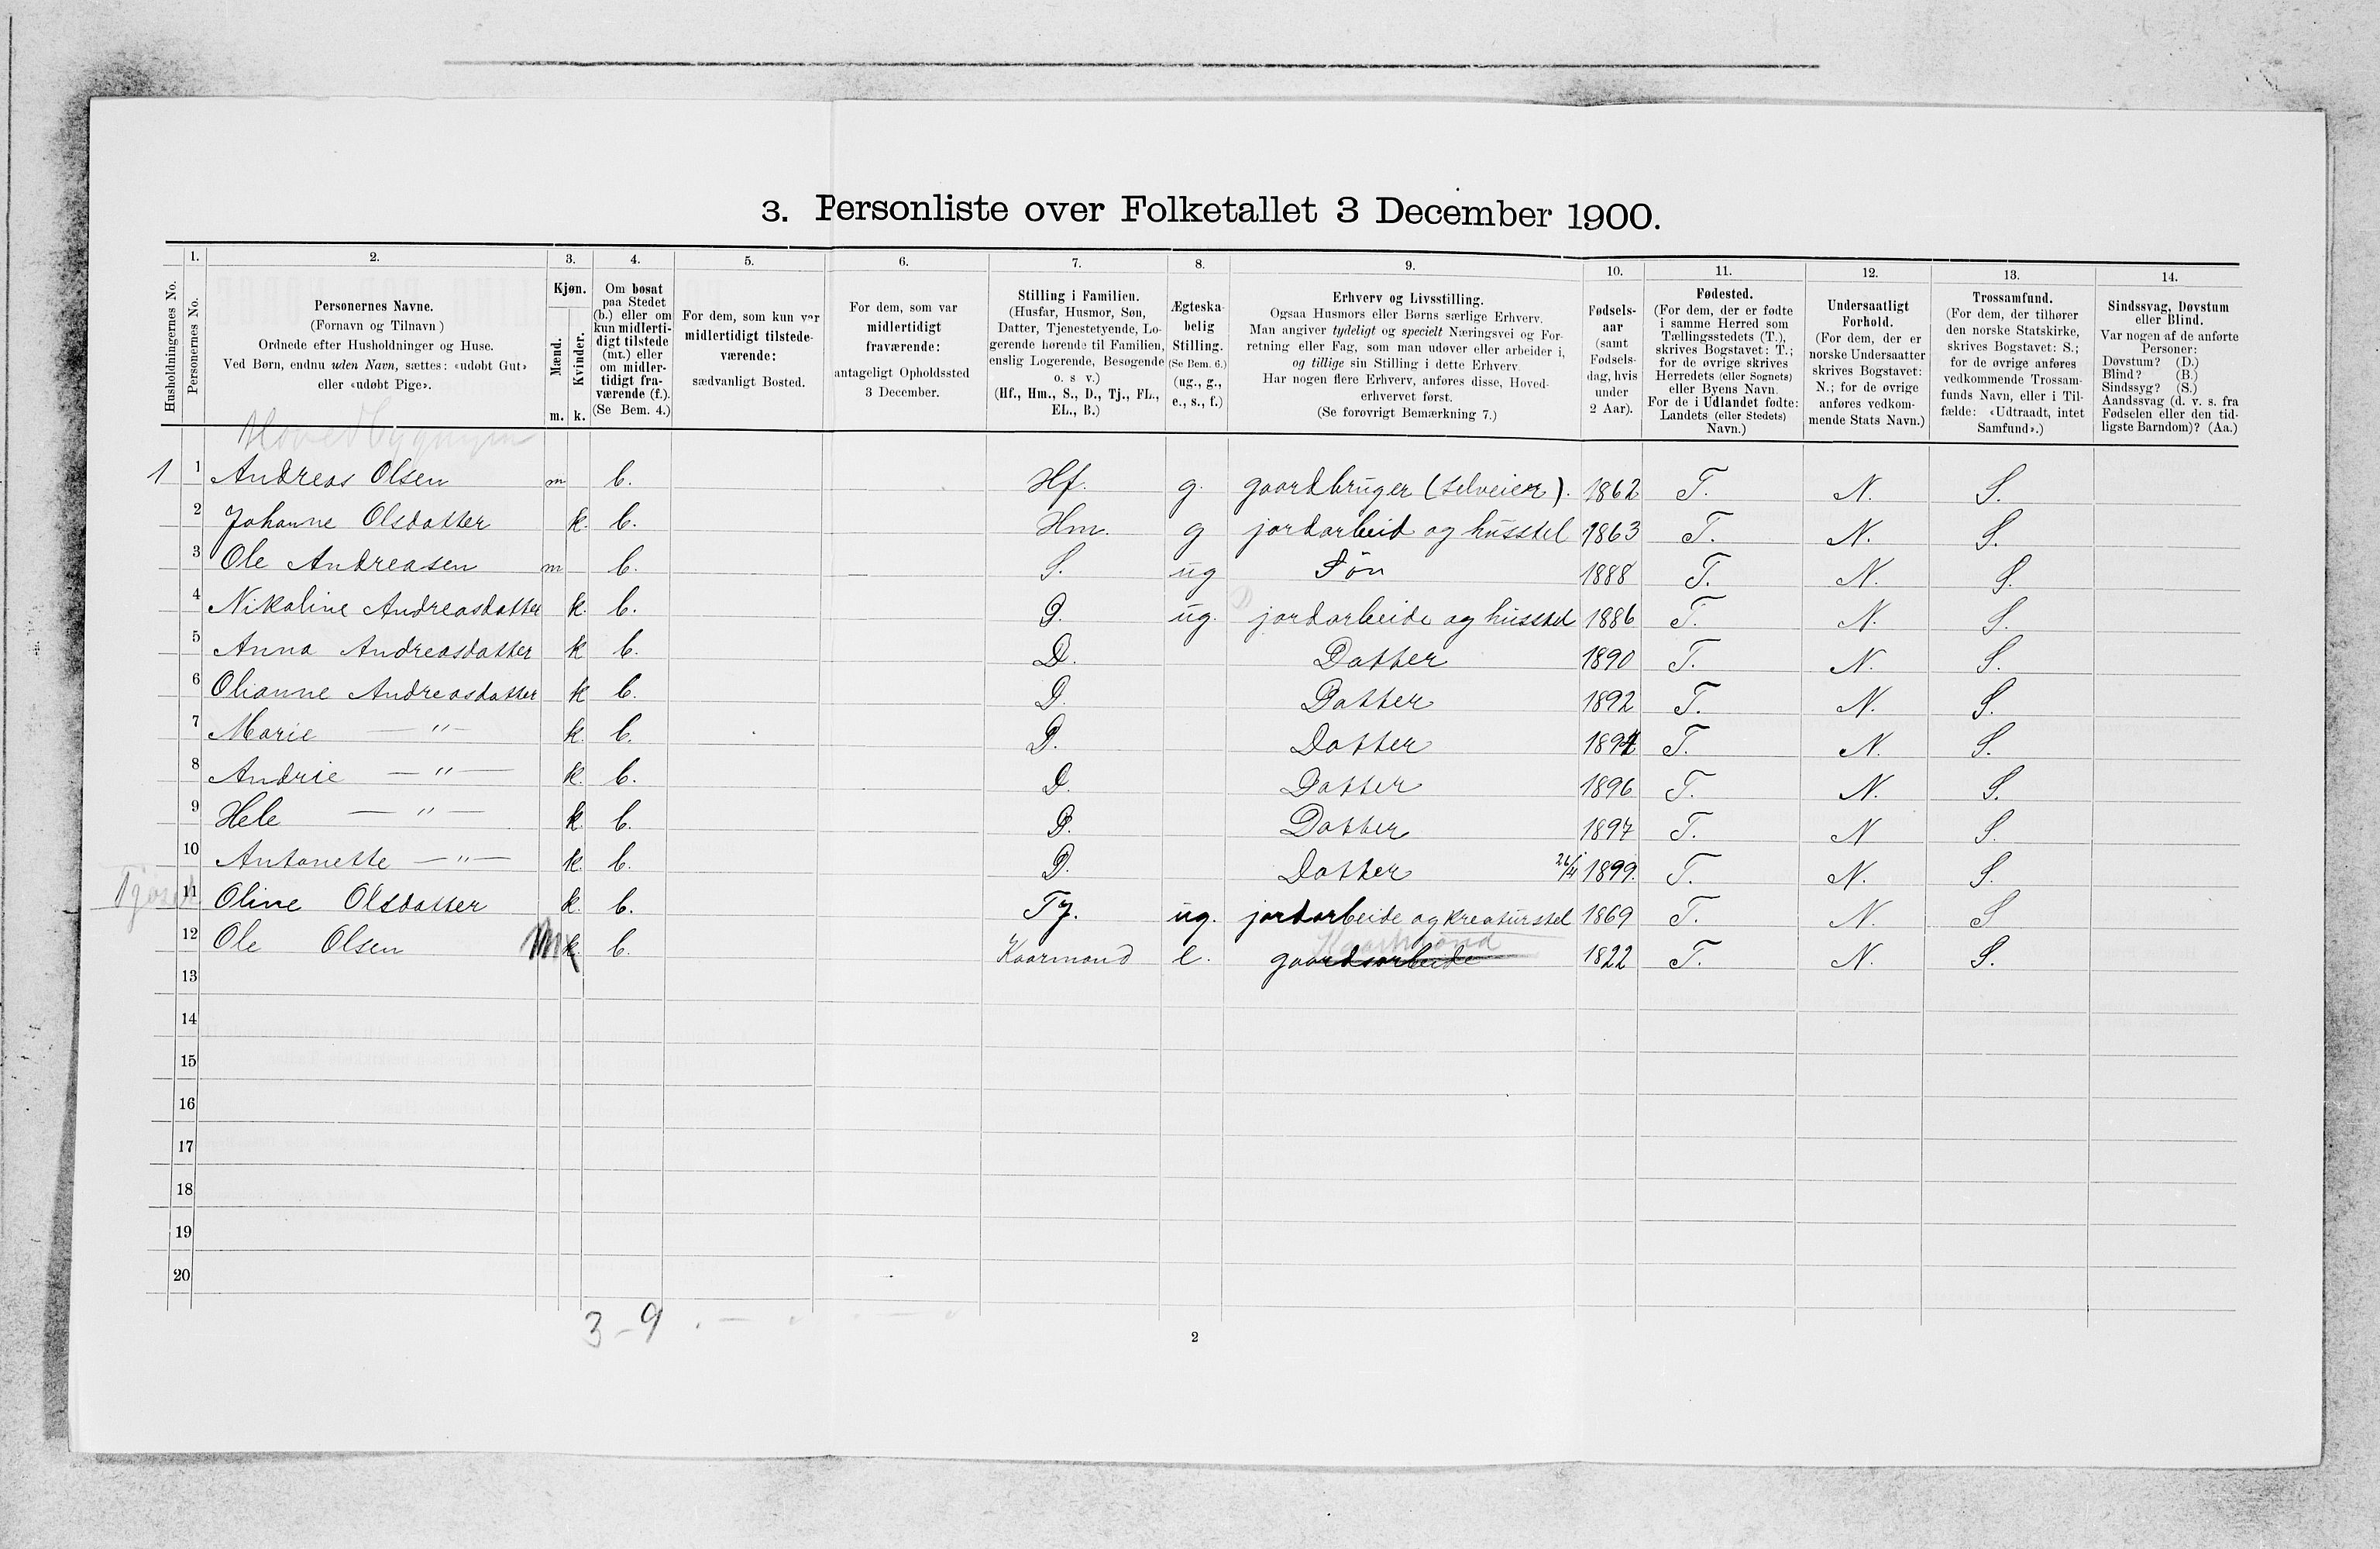 3. Personliste over Folketallet 3 December 1900.
Husholdningernes No.
1.
Personernes No.
2.
Personernes Navne.
(Fornavn og Tilnavn)
Ordnede efter Husholdninger og Huse.
Ved Børn, endnu uden Navn, sættes: «udøbt Gut»
eller «udøbt Pige».
3.
Kjøn.
Mænd.
m.
Kvinder.
k.
4.
Om bosat
paa Stedet
(b.) eller om
kun midlerti-
digt tilstede
(mt.) eller
om midler-
tidigt fra-
værende (f.).
(Se Bem. 4.)
5.
For dem, som kun var
midlertidigt tilstede-
værende:
sædvanligt Bosted.
6.
For dem, som var
midlertidigt
fraværende:
antageligt Opholdssted
3 December.
7.
Stilling i Familien.
(Husfar, Husmor, Søn,
Datter, Tjenestetyende, Lo-
gerende hørende til Familien,
enslig Logerende, Besøgende
o. s v.)
(Hf., Hm., S., D., Tj., FL.,
EL., B.)
8.
Ægteska-
belig
Stilling.
(Se Bem. 6.)
(ug., g.,
e., s., f.)
9.
Erhverv og Livsstilling.
Ogsaa Husmors eller Børns særlige Erhverv.
Man angiver tydeligt og specielt Næringsvei og For-
retning eller Fag, som man udøver eller arbeider i,
og tillige sin Stilling i dette Erhverv.
Har nogen flere Erhverv, anføres disse, Hoved-
erhvervet først.
(Se forøvrigt Bemærkning 7.)
10.
Fødsels-
aar
(samt
Fødsels-
dag, hvis
under
2 Aar).
11.
Fødested.
(For dem, der er fødte
i samme Herred som
Tællingsstedets (T.),
skrives Bogstavet: T.;
for de øvrige skrives
Herredets (eller Sognets)
eller Byens Navn.
For de i Udlandet fødte:
Landets (eller Stedets)
Navn.)
12.
Undersaatligt
Forhold.
(For dem, der er
norske Undersaatter
skrives Bogstavet:
N.; for de øvrige
anføres vedkom-
mende Stats Navn.)
13.
Trossamfund.
(For dem, der tilhører
den norske Statskirke,
skrives Bogstavet: S.;
for de øvrige anføres
vedkommende Trossam-
funds Navn, eller i Til-
fælde: «Udtraadt, intet
Samfund».)
14.
Sindssvag, Døvstum
eller Blind.
Var nogen af de anførte
Personer:
Døvstum? (D.)
Blind? (B.)
Sindssyg? (S.)
Aandssvag (d. v. s. fra
Fødselen eller den tid-
ligste Barndom)? (Aa.)
Hovedbygningen
1 1 Andreas Olsen m b. Hf. g. gaardbruger (selveier). 1862 T. N. S.
2 Johanne Olsdatter k. b. Hm. g jordarbeid og husstel 1863 T. N. S.
3 Ole Andreasen m b. S. ug Søn 1888 T. N. S.
4 Nikoline Andreasdatter k. b. D. ug. jordarbeide og husstel 1886 T. N. S.
5 Anna Andreasdatter k b. D. Datter 1890 T. N. S.
6 Olianne Andreasdatter k b. D. Datter 1892 T. N. S.
7 Marie — " — k. b. D. Datter 1894 T. N. S.
8 Andrie — " — k. b. D. Datter 1896 T. N. S.
9 Hele — " — k. b. D. Datter 1897 T. N S.
10 Antonette — " — k. b. D. Datter 26/4 1899. T. N. S.
11 Oline Olsdatter k. b. Tj. ug. jordarbeide og kreaturstel 1869 T. N. S
12 Ole Olsen m k. b. Kaarmand e. gaardsarbeide Kaarmand 1822 T. N. S.
13
14
15
16
17
18
19
20
3-9
2